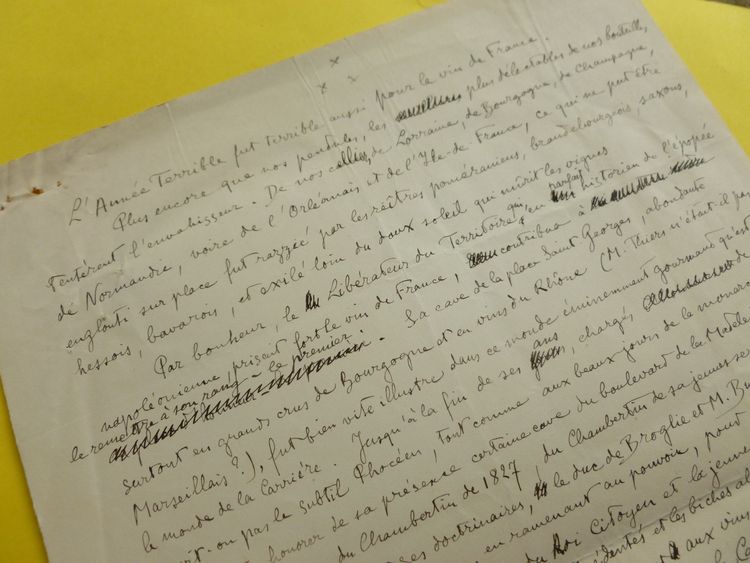 L'Année Terrible fut terrible aussi pour le vin de France.
Plus encore que nos pendules, les plus délectables de nos bouteilles,
tentèrent l'envahisseur. De nos celliers, de Lorraine, de Bourgogne, de Champagne,
de Normandie, voire de l'Orléanais et de l'Ile-de-France, ce qui ne peut être
englouti sur place fut razzié par les reîtres poméraniens, brandebourgeois, saxons,
hessois, bavarois, et exilé loin du doux soleil qui mûrit les vignes
Par bonheur, le Libérateur du Territoire qui, en parfait historien de l'épopée
napoléonienne, prisait fort le vin de France, contribua à
le remettre à son rang - le premier. Sa cave de la place Saint-Georges, abondante
surtout en grands crus de Bourgogne et en vins du Rhône (M. Thiers n'était-il pas
Marseillais?), fut bien vite illustre dans ce monde éminemment gourmand qu'est
le monde de la Carrière. Jusqu'à la fin de ses ans, chargés de
-on pas le subtil Phocéen, tout comme aux beaux jours de la monarc
honorer de sa présence certaine cave du boulevard de la Madele
du Chambertin de 1827, du Chambertin de sa jeunesse
doctrinaires, le duc de Broglie et M. Bu
en ramenant au pouvoir, pour
du Roi Citoyen et la jeune
et les biches
aux vins